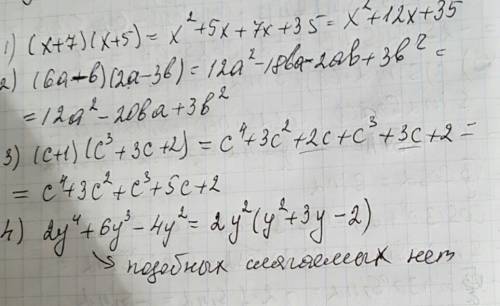 1) (x+7)(x+5) = x²+5x+7x+35 = x²+12x+35
2) (6a-b)(2a-3b) = 12a²-18ba-2ab+3b² =
= 12a²-20ba+3b²
3) (c+1)(c³+3c+2) = c⁴+3c²+2c+c³+3c+2 =
= c⁴+3c²+c³+5c+2
4) 2y⁴+6y³-4y² = 2y²(y²+3y-2)
↘ подобных слагаемых нет